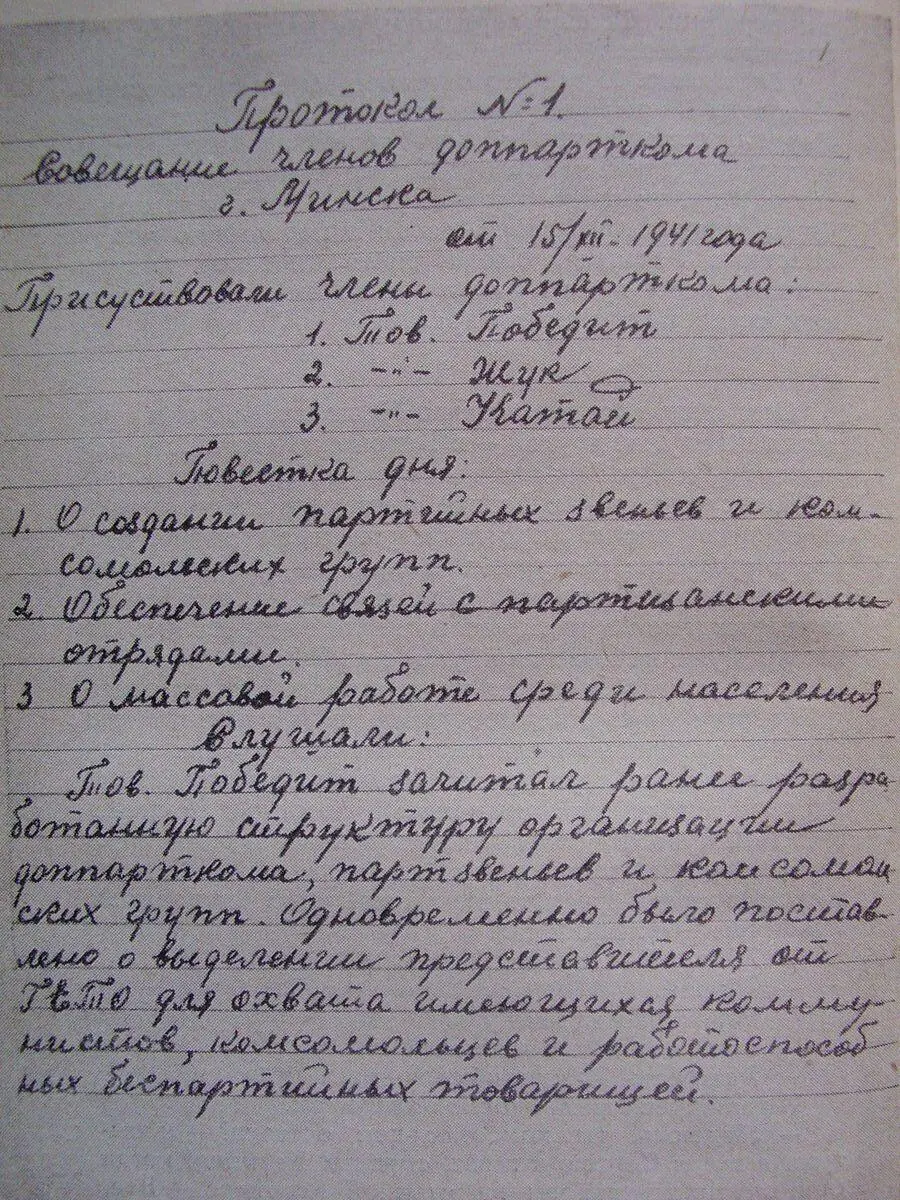 1
Протокол №1.
Совещание членов доппарткома
г. Минска
от 15/XII-1941 года
Присуствовали члены доппарткома:
1. Тов. Победит
2. -"- Жук
3. -"- Катай
Повестка дня:
1. О создании партийных звеньев и ком-
сомольских групп.
2. Обеспечение связей с партизанскими
отрядами.
3 О массовой работе среди населения
Слушали:
Тов. Победит зачитал ранее разра
ботанную структуру организации
доппарткома, партзвеньев и комсомол
ских групп. Одновременно было постав-
лено о выделении представителя от
ГЕТО для охвата имеющихся комму-
нистов, комсомольцев и работоспособ
ных беспартийных товарищей.